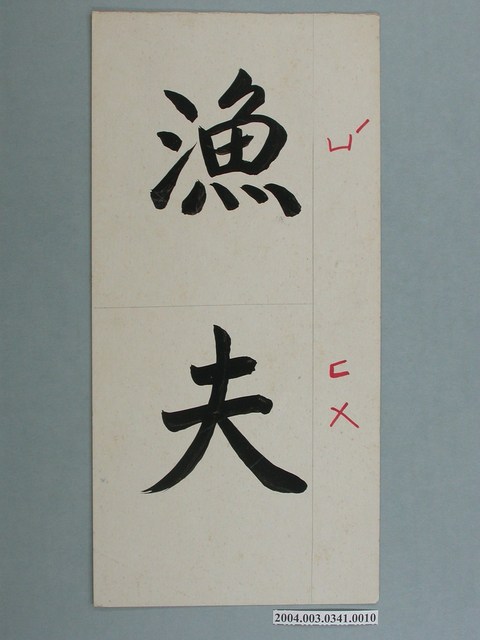 漁 ㄩˊ
夫 ㄈㄨ
2004.003.0341.0010